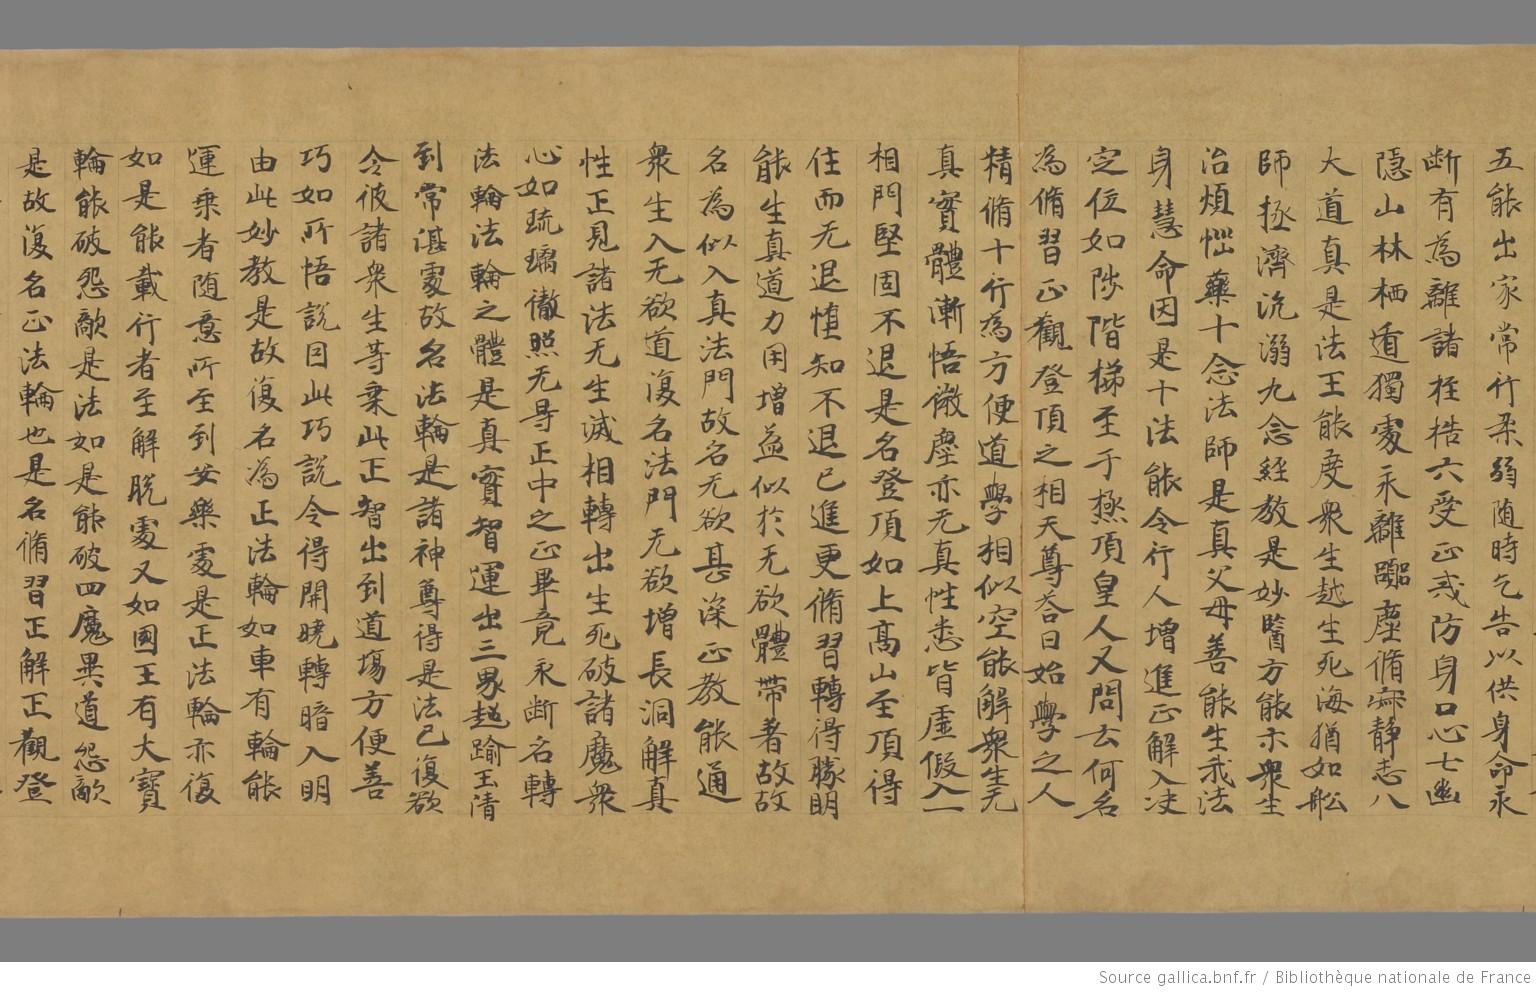 五能出家常行柔弱随時乞告以供身命永
断有為離諸桎梏六受正戒防身口心七幽
隠山林栖遁獨處永離嚻塵脩寂静志八
大道真是法王能度衆生越生死海猶如舩
師拯濟沉溺九念經教是妙醫方能示衆生
治煩惱藥十念法師是真父母善能生我法
身慧命因是十法能令行人增進正解入决
定位如陟階梯至于㮣頂皇人又問去何名
為脩習正觀登頂之相天尊荅曰始學之人
精脩十行為方便道學相似空能解衆生无
真實體漸悟微塵亦无真性悉皆虚假入一
相門堅固不退是名登頂如上髙山至頂得
住而无退惰知不退已進更脩習轉得勝明
能生真道力用增益似於无欲體帶著故故
名為似入真法門故名无欲甚深正教能通
衆生入无欲道復名法門无欲增長洞解真
性正見諸法无生滅相轉出生死破諸魔衆
心如琉璃徹照无㝵正中之正畢竟永断名轉
法輪法輪之體是真實智運出三界超踰玉清
到常湛處故名法輪是諸神尊得是法已復欲
令彼諸衆生等乗此正智出到道塲方便善
巧如所悟說因此巧說令得開曉轉暗入明
由此妙教是故復名為正法輪如車有輪能
運乗者随意所至到安樂處是正法輪亦復
如是能載行者至解脱處又如國王有大寳
輪能破怨敵是法如是能破四魔異道怨敵
是故復名正法輪也是名脩習正解正觀登
Source gallica.bnf.fr / Bibliothèque nationale de France